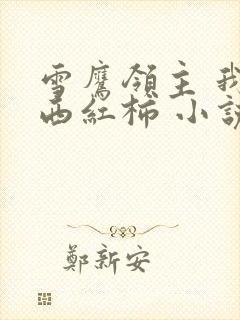 雪鷹領主 我
西紅柿 小說
鄭新安